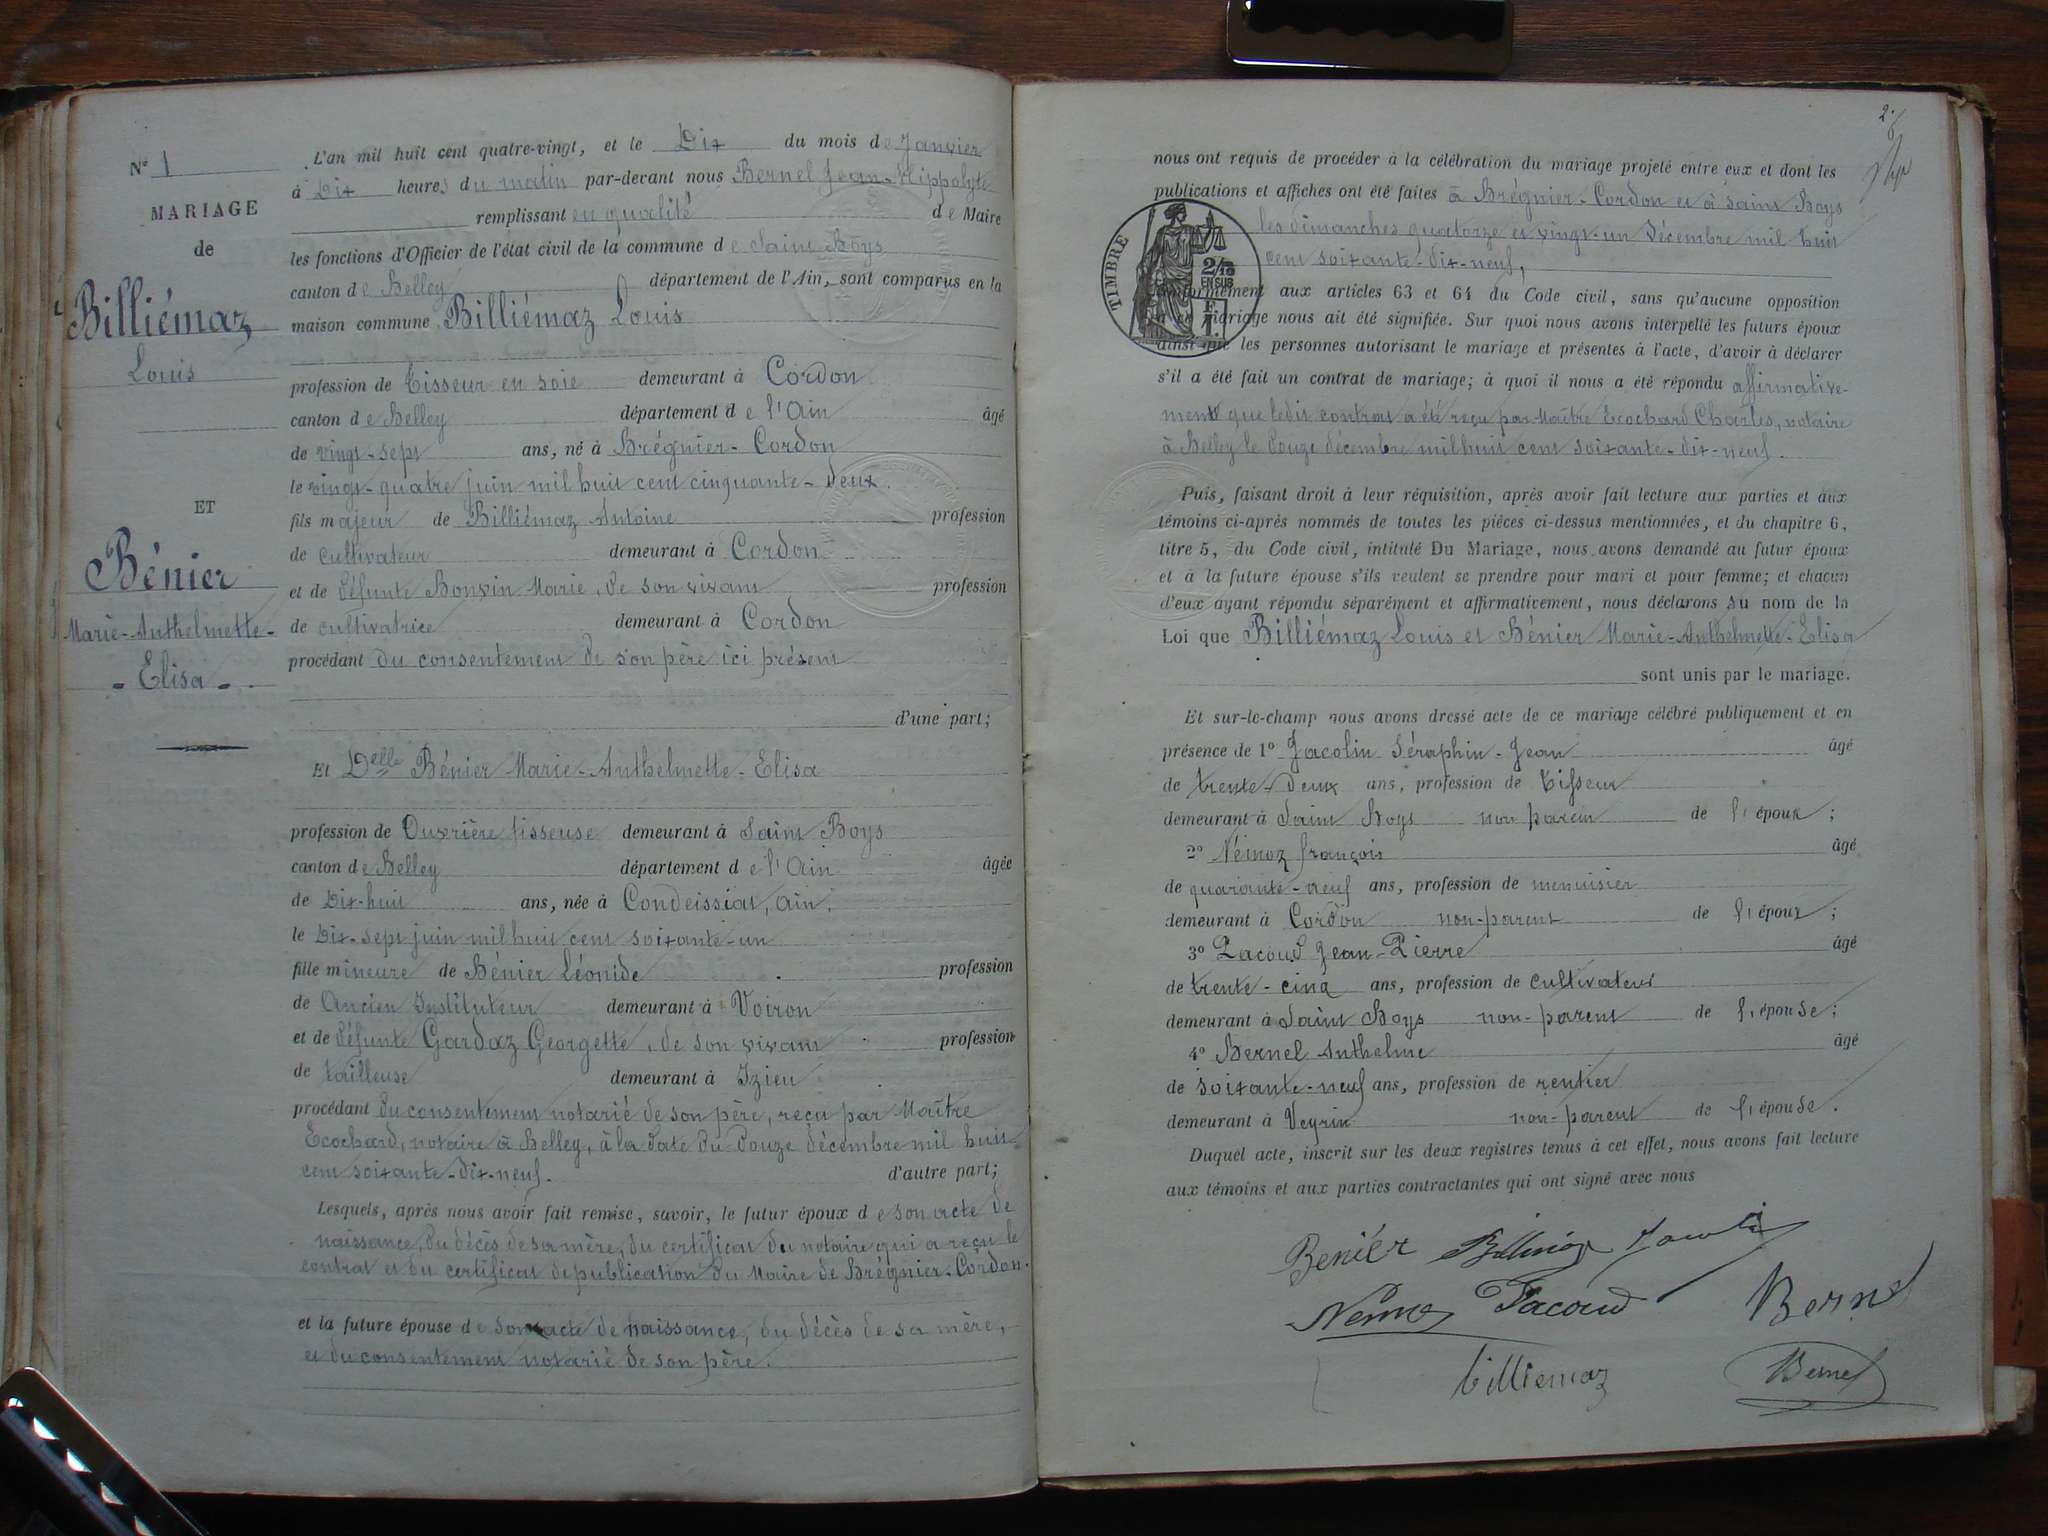 N° 1
MARIAGE
de
Billiémaz
Louis
ET
Bénier
Marie-Anthelmette-
- Elisa -
L'an mil huit cent quatre-vingt, et le Dix du mois de Janvier
à Dix heures du matin par-devant nous Bernel Jean-Hippolyte
remplissant en qualité de Maire
les fonctions d'Officier de l'état civil de la commune de Saint Bôys
canton de Belley département de l'Ain, sont comparus en la
maison commune Billiémaz Louis
profession de Tisseur en soie demeurant à Cordon
canton de Belley département de l'Ain âgé
de vingt-sept ans, né à Brégnier-Cordon
le vingt-quatre juin mil huit cent cinquante-deux.
fils majeur de Billiémaz Antoine profession
de cultivateur demeurant à Cordon
et de défunte Bonvin Marie, de son vivant profession
de cultivatrice demeurant à Cordon
procédant du consentement de son père ici présent
d'une part;
Et Delle Bénier Marie-Anthelmette-Elisa
profession de Ouvrière tisseuse demeurant à Saint Boys
canton de Belley département de l'Ain âgée
de Dix-huit ans, née à Condeissiat, Ain,
le Dix-sept juin mil huit cent soixante-un
fille mineure de Bénier Léonide profession
de Ancien Instituteur demeurant à Voiron
et de défunte Gardaz Georgette, de son vivant profession
de tailleuse demeurant à Izieu
procédant du consentement notarié de son père, reçu par Maître
Ecochard, notaire à Belley, à la date du douze décembre mil huit
cent soixante-dix-neuf. d'autre part;
Lesquels, après nous avoir fait remise, savoir, le futur époux de son acte de
naissance, du décès de sa mère, du certificat du notaire qui a reçu le
contrat et du certificat de publication du Maire de Brégnier-Cordon.
et la future épouse de son acte de naissance, du décès de sa mère,
et du consentement notarié de son père.
2.
nous ont requis de procéder à la célébration du mariage projeté entre eux et dont les
publications et affiches ont été faites à Brégnier-Cordon et à Saint Boys
les dimanches quatorze et vingt-un Décembre mil huit
cent soixante-dix-neuf,
TIMBRE
2/10
EN SUS
F.
1.
conformément aux articles 63 et 64 du Code civil, sans qu'aucune opposition
à ce mariage nous ait été signifiée. Sur quoi nous avons interpellé les futurs époux
ainsi que les personnes autorisant le mariage et présentes à l'acte, d'avoir à déclarer
s'il a été fait un contrat de mariage; à quoi il nous a été répondu affirmative-
ment que ledit contrat a été reçu par Maître Ecochard Charles, notaire
à Belley le Douze décembre mil huit cent soixante-dix-neuf.
Puis, faisant droit à leur réquisition, après avoir fait lecture aux parties et aux
témoins ci-après nommés de toutes les pièces ci-dessus mentionnées, et du chapitre 6,
titre 5, du Code civil, intitulé Du Mariage, nous avons demandé au futur époux
et à la future épouse s'ils veulent se prendre pour mari et pour femme; et chacun
d'eux ayant répondu séparément et affirmativement, nous déclarons au nom de la
Loi que Billiémaz Louis et Bénier Marie-Anthelmette-Elisa
sont unis par le mariage.
Et sur-le-champ nous avons dressé acte de ce mariage célébré publiquement et en
présence de 1° Jacolin Séraphin-Jean âgé
de trente-deux ans, profession de Tisseur
demeurant à Saint Boys non parent de l'époux;
2° Némoz françois âgé
de quarante-neuf ans, profession de menuisier
demeurant à Cordon non-parent de l'époux;
3° Pacoud Jean-Pierre âgé
de trente-cinq ans, profession de cultivateur
demeurant à Saint Boys non-parent de l'épouse;
4° Bernel Anthelme âgé
de soixante-neuf ans, profession de rentier
demeurant à Veyrin non-parent de l'épouse.
Duquel acte, inscrit sur les deux registres tenus à cet effet, nous avons fait lecture
aux témoins et aux parties contractantes qui ont signé avec nous
Beniér Billiemaz Jacolin
Nemoz Pacoud Bernel
billiemaz Bernel